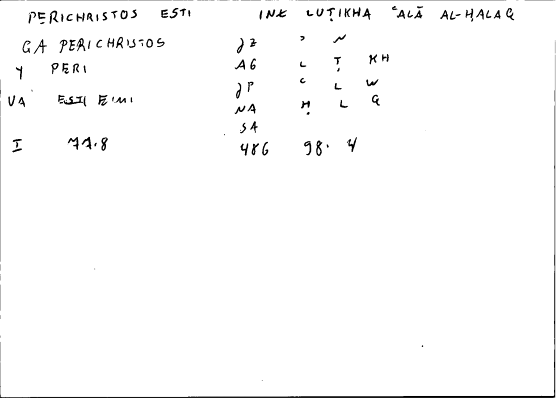 PERICHRISTOS ESTI INK LUṬIKHA ʿALĀ AL-ḤALAQ
GA PERICHRISTOS JZ ʾ N
Y PERI AG L Ṭ KH
VA ESTI EIMI JP ʿ L W
NA Ḥ L Q
SA
I 77.8 486 98.4